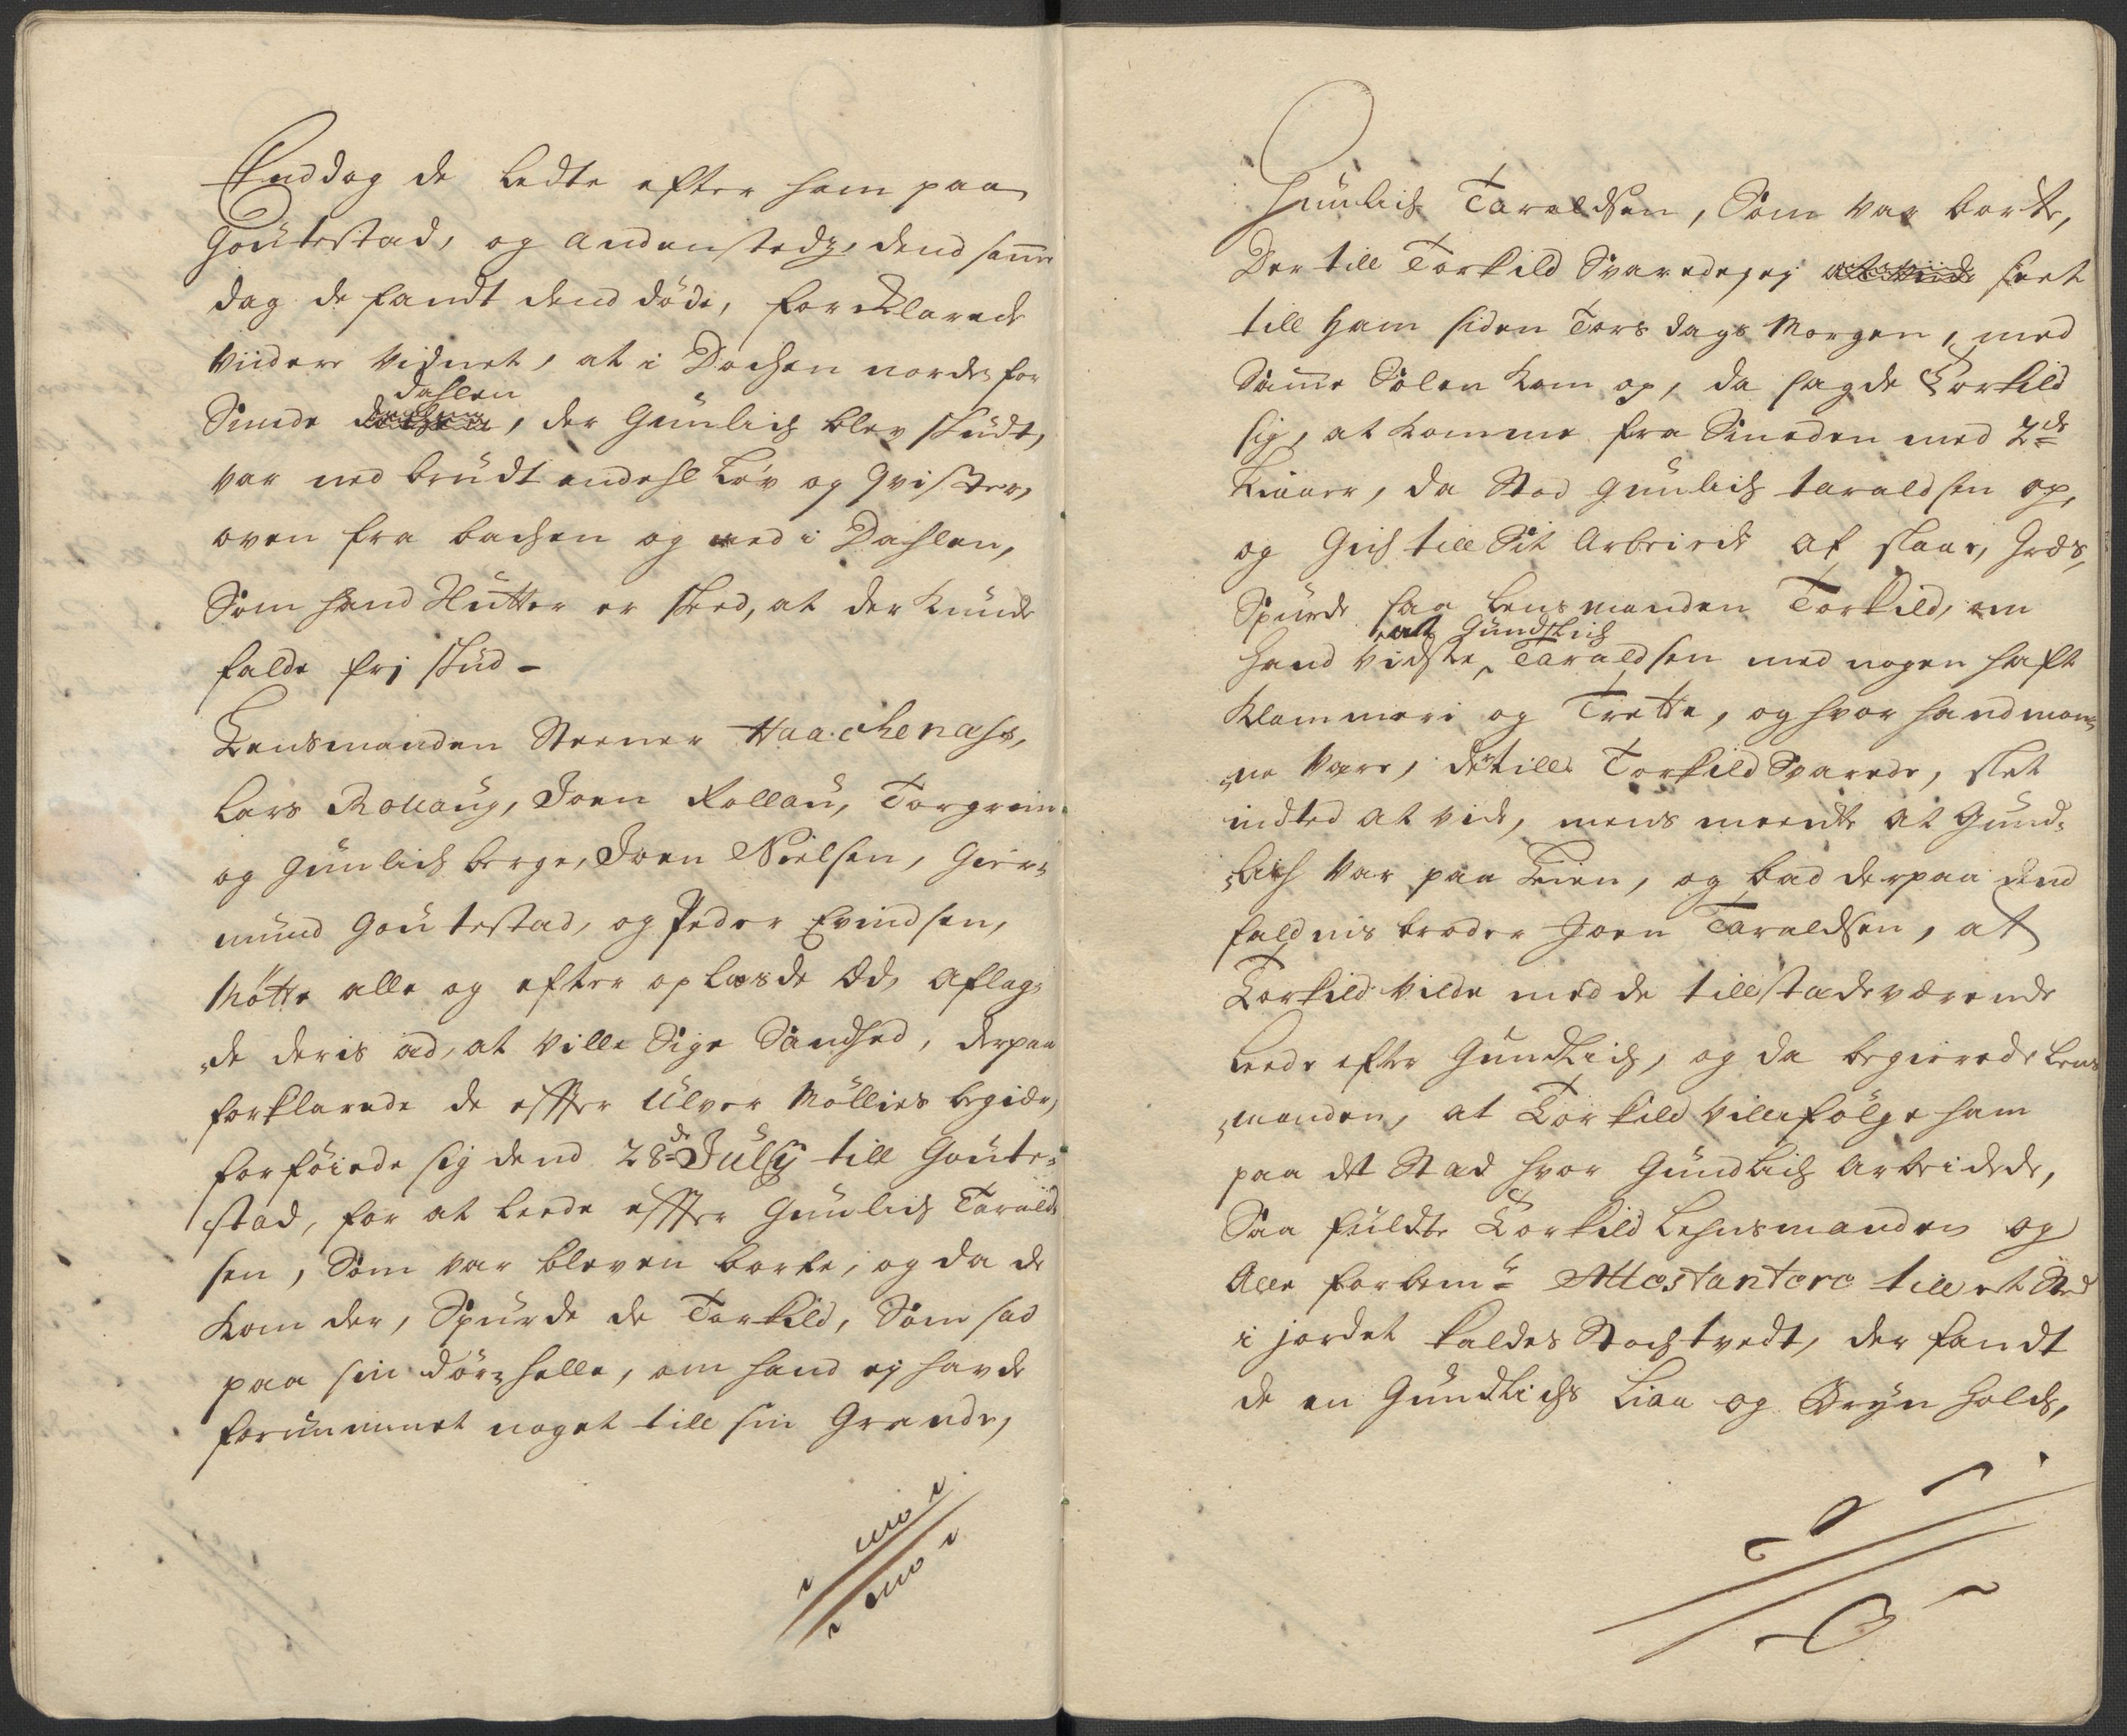 Enddog de ledte efter ham paa
Goutestad, og andenstedz, dend samme
dag de fandt dend döde, forEklarede
viidere vidnet, at i Dochen norden for
Smede dochen dahlen, der Gunlich blev skudt,
var ned brudt endehl Löv og Qvister,
oven fra bachen og ned i Dahlen,
Som hand Slutter er skeed, at der kunde
falde fri skud -
Lensmanden Steener Haachenæss,
Lars Rollaug, Joen Rollau, Torgrim
og Gunlich berge, Joen Nielsen, Gier-
mund Goutestad, og Peder Evindsen,
Mötte alle og efter oplæsde Æd, aflag-
de deris æd, at ville Sige Sandhed, derpaa
forklarede de effter Ulver Möllers begier,
forföiede sig dend 28de Julij till Goute-
stad, for at leede effter Gunlich Tarald
sen, Som var bleven borte, og da de
kom der, Spurde de Torkild, Som sad
paa sin dör-helle, om hand ej havde
fornummet noget till sin Grande,
Gunlich Taraldsen, Som var borte,
Der till Torkild Svarede, ej at viide seet
till ham siden Torsdags Morgen, med
Samme Solen kom op, da sagde Torkild
sig, at komme fra Smeden med 2de
Liaaer, da Stod Gunlich taraldsen op,
og Gich till Sit Arbeide at slaae, Græs,
Spurde saa Lensmanden Torkild, om
hand vidste at Gundlich Taraldsen med nogen haft
Klammeri og Trette, og hvor hand mon-
ne være, dertill Torkild Svarede, slet
indted at vide, mens meente at Gund-
lich var paa Leien, og bad derpaa dend
faldnis broder Joen Taraldsen, at
Torkild vilde med de tillstædeværende
leede efter Gundlich, og da begierede Lens
manden, at Torkild ville fölge ham
paa det Stæd hvor Gundlich Arbeidede,
Saa fuldte Torkild Lehnsmanden og
Alle forbemte Attestantere till et Stæd
i jordet kaldes Stochtvedt, der fandt
de en Gundlichs Liaa og Bryn holch,